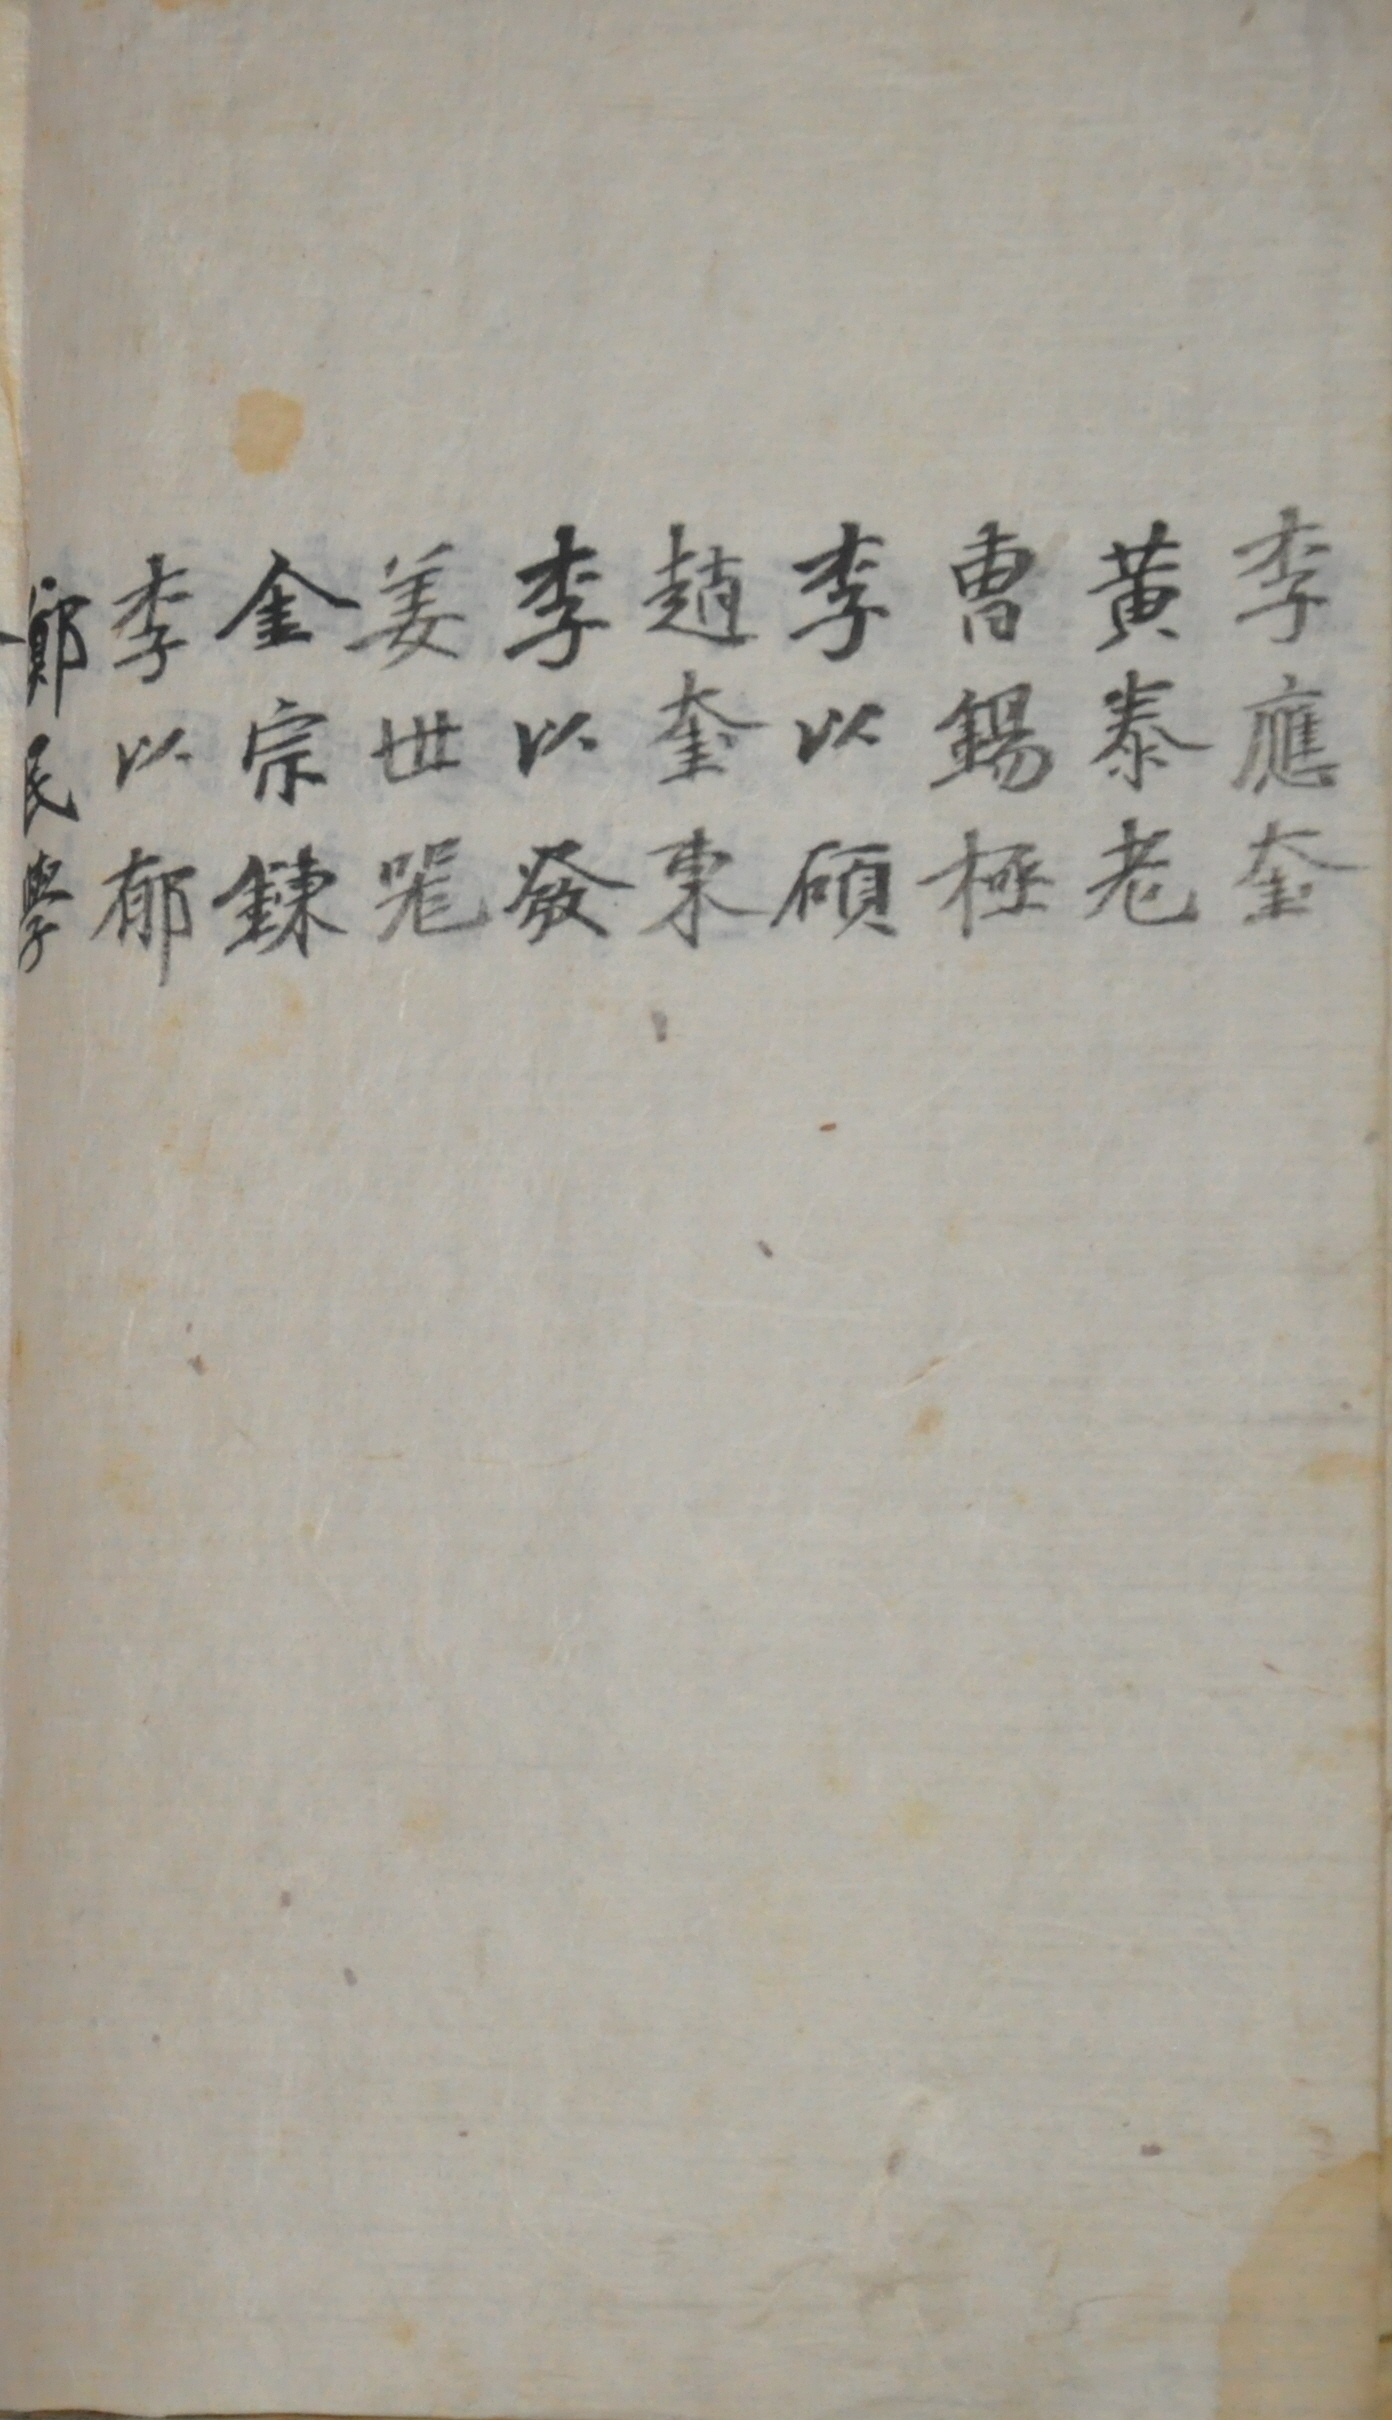 李應奎
黃泰老
曺錫極
李以碩
趙奎東
李以發
姜世
金宗鍊
李以郁
鄭民學